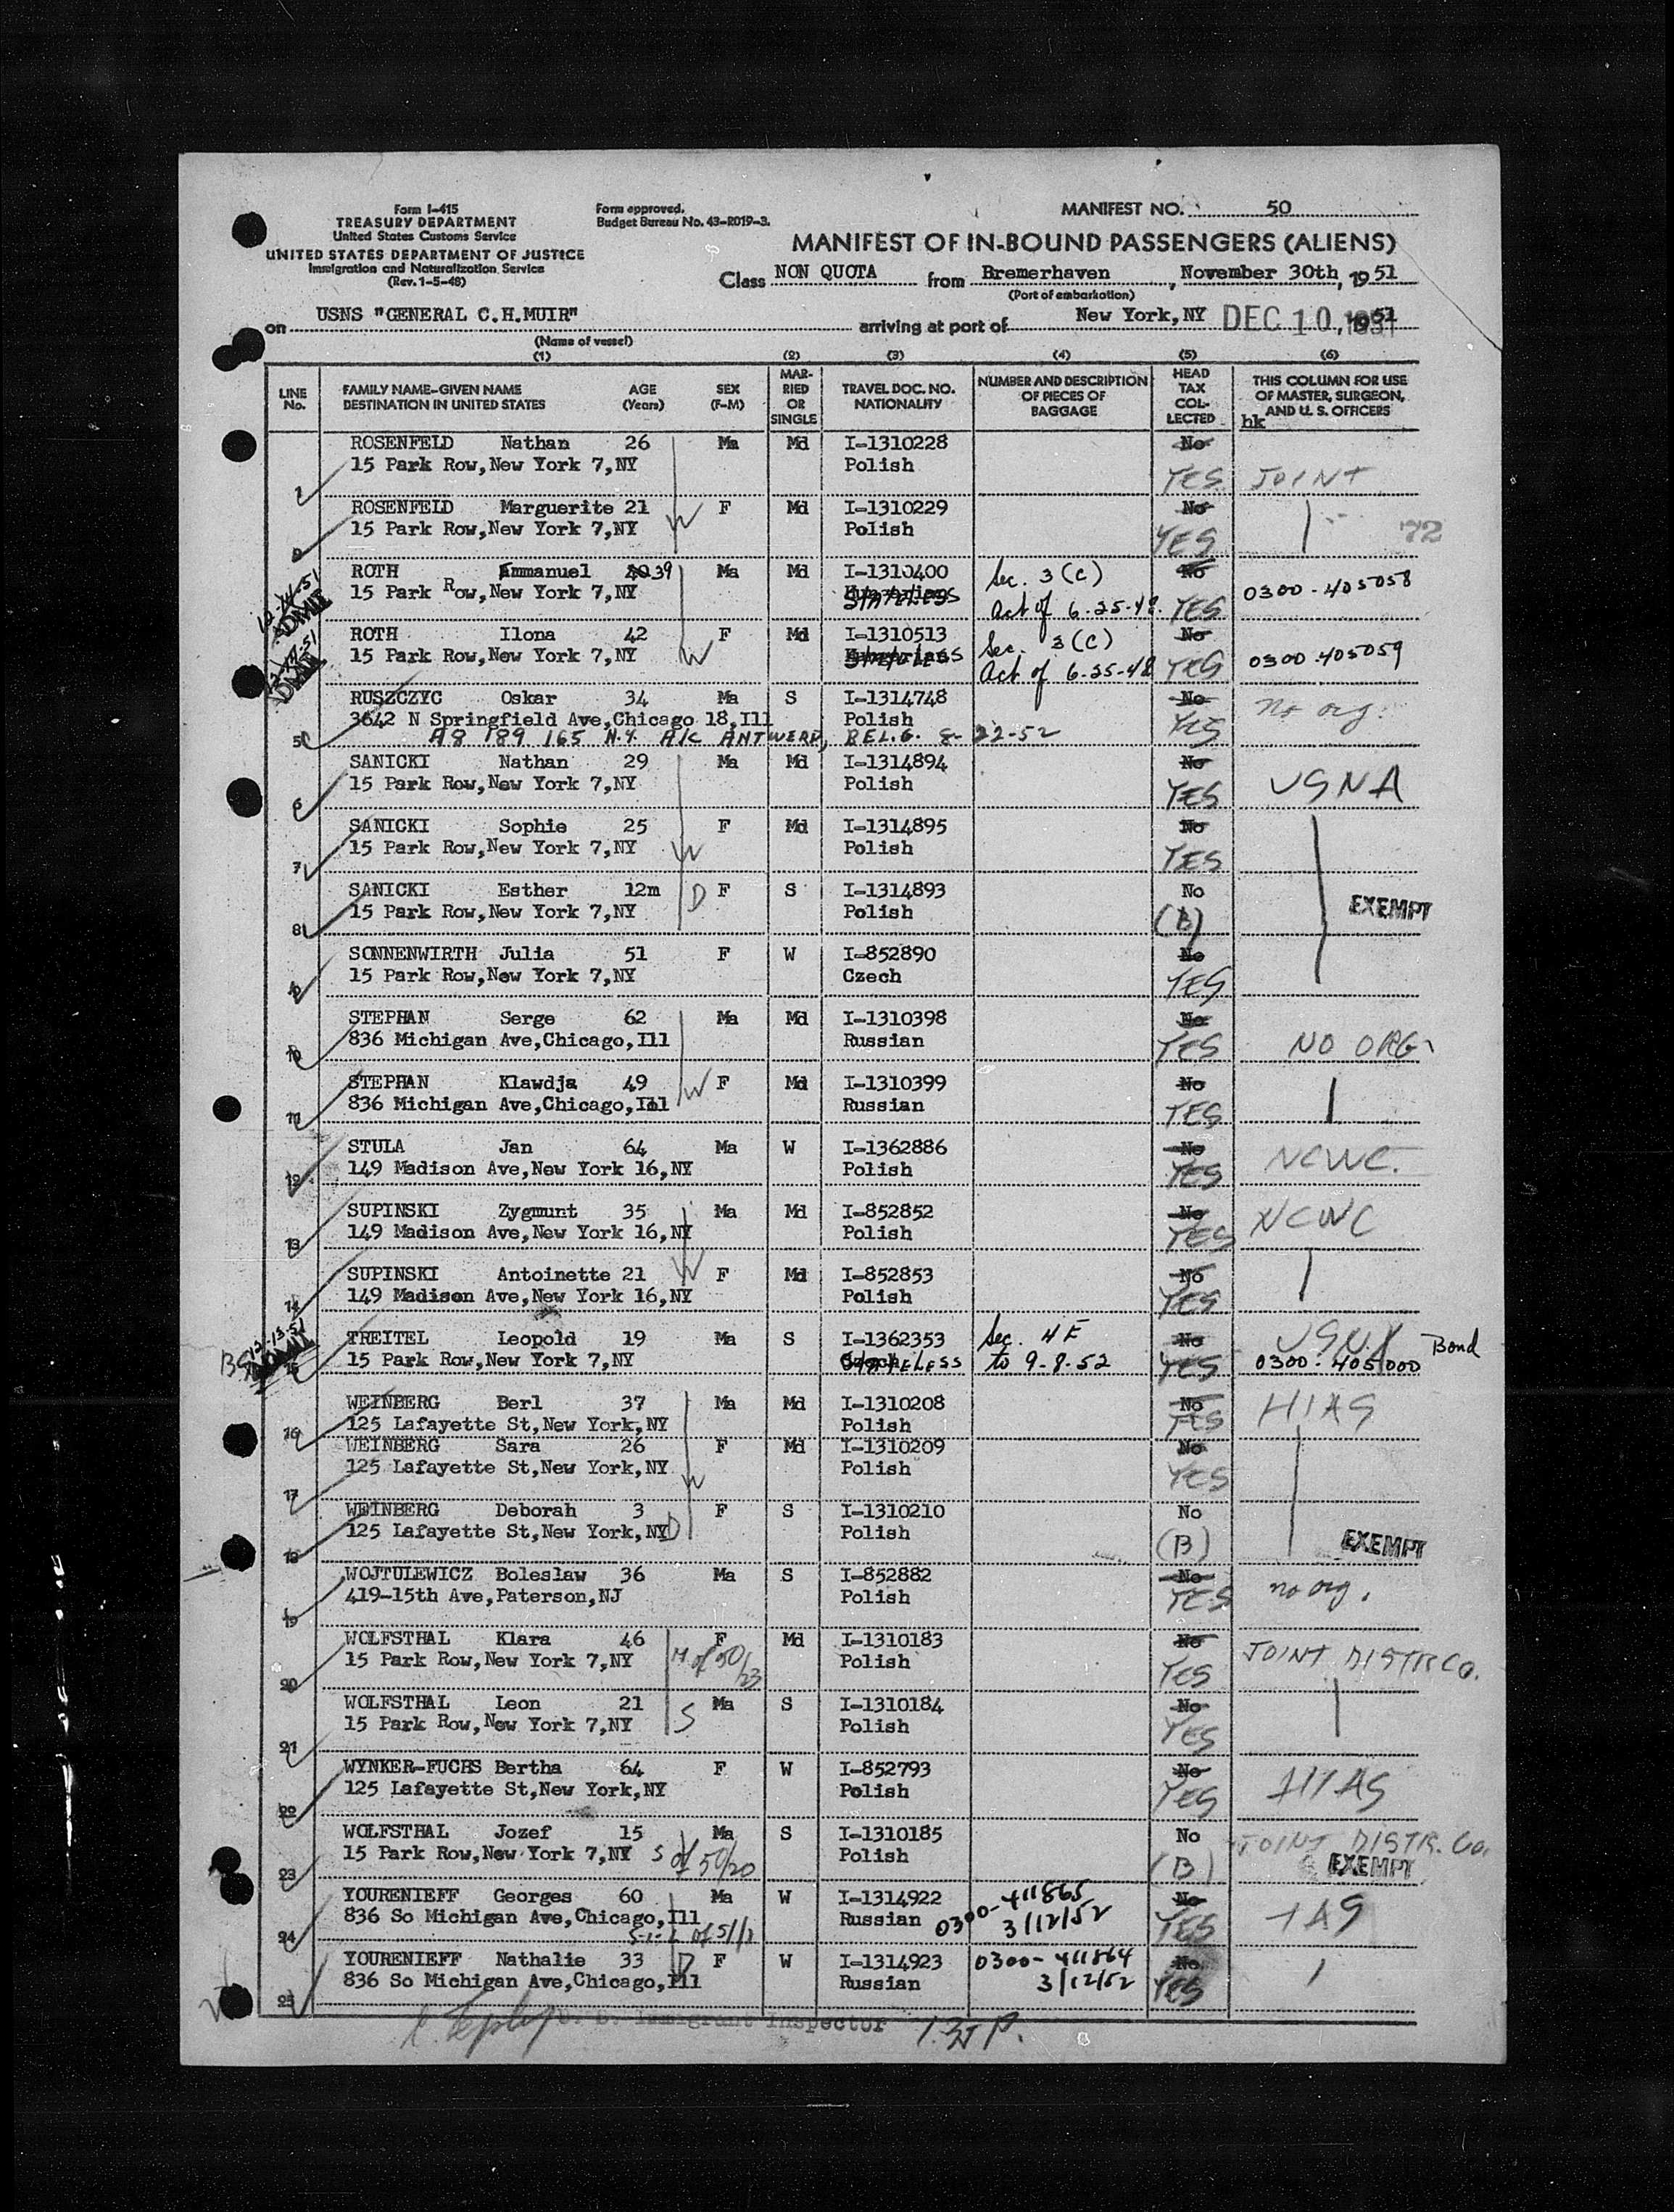 Form I-415
TREASURY DEPARTMENT
United States Customs Service
UNITED STATES DEPARTMENT OF JUSTICE
Immigration and Naturalization Service
(Rev. 1-5-48)
Form approved.
Budget Bureau No. 43-R019-3.
MANIFEST NO. 50
MANIFEST OF IN-BOUND PASSENGERS (ALIENS)
Class NON QUOTA from Bremerhaven, November 30th, 1951
(Port of embarkation)
on USNS "GENERAL C.H.MUIR" arriving at port of New York,NY DEC 10 1951, 1951
(Name of vessel)
(1) (2) (3) (4) (5) (6)
LINE No.
FAMILY NAME-GIVEN NAME DESTINATION IN UNITED STATES
AGE (Years)
SEX (F-M)
MARRIED OR SINGLE
TRAVEL DOC. NO. NATIONALITY
NUMBER AND DESCRIPTION OF PIECES OF BAGGAGE
HEAD TAX COLLECTED
THIS COLUMN FOR USE OF MASTER, SURGEON, AND U. S. OFFICERS
hk
ROSENFELD Nathan 26 Ma Md I-1310228 No
15 Park Row,New York 7,NY Polish YES JOINT
ROSENFELD Marguerite 21 W F Md I-1310229 No
2 15 Park Row,New York 7,NY Polish YES 72
ROTH Emmanuel 40 39 Ma Md I-1310400 Sec. 3(c) No
12-14-51 ADMIT 15 Park Row,New York 7,NY Hungarian STATELESS Act of 6-25-48. YES 0300-405058
ROTH Ilona 42 W F Md I-1310513 Sec. 3(c) No
ADMIT 15 Park Row,New York 7,NY STATELESS Act of 6-25-48 YES 0300-405059
RUSZCZYC Oskar 34 Ma S I-1314748 No
3642 N Springfield Ave,Chicago 18,Ill Polish YES no org.
5 A8 189 165 N.Y. A/C ANTWERP, BELG. 8-22-52
SANICKI Nathan 29 Ma Md I-1314894 No
6 15 Park Row,New York 7,NY Polish YES USNA
SANICKI Sophie 25 W F Md I-1314895 No
7 15 Park Row,New York 7,NY Polish YES
SANICKI Esther 12m D F S I-1314893 No
8 15 Park Row,New York 7,NY Polish (B) EXEMPT
SONNENWIRTH Julia 51 F W I-852890 No
15 Park Row,New York 7,NY Czech YES
STEPHAN Serge 62 Ma Md I-1310398 No
10 836 Michigan Ave,Chicago,Ill Russian YES NO ORG
STEPHAN Klawdja 49 W F Md I-1310399 No
11 836 Michigan Ave,Chicago,Ill Russian YES
STULA Jan 64 Ma W I-1362886 No
12 149 Madison Ave,New York 16,NY Polish YES NCWC.
SUPINSKI Zygmunt 35 Ma Md I-852852 No
13 149 Madison Ave,New York 16,NY Polish YES NCWC
SUPINSKI Antoinette 21 W F Md I-852853 No
14 149 Madison Ave,New York 16,NY Polish YES
12-13-51 ADMIT TREITEL Leopold 19 Ma S I-1362353 Sec. 4F No USNA Bond
15 15 Park Row,New York 7,NY Czech STATELESS to 9-8-52 YES 0300-405000
WEINBERG Berl 37 Ma Md I-1310208 No HIAS
16 125 Lafayette St,New York,NY Polish YES
WEINBERG Sara 26 F Md I-1310209 No
17 125 Lafayette St,New York,NY W Polish YES
WEINBERG Deborah 3 F S I-1310210 No
18 125 Lafayette St,New York,NY D Polish (B) EXEMPT
WOJTULEWICZ Boleslaw 36 Ma S I-852882 No
19 419-15th Ave,Paterson,NJ Polish YES no org.
WOLFSTHAL Klara 46 F Md I-1310183 No
20 15 Park Row,New York 7,NY M of 50/23 Polish YES JOINT DISTR CO.
WOLFSTHAL Leon 21 Ma S I-1310184 No
21 15 Park Row,New York 7,NY S Polish YES
WYNKER-FUCHS Bertha 64 F W I-852793 No
22 125 Lafayette St,New York,NY Polish YES HIAS
WOLFSTHAL Jozef 15 Ma S I-1310185 No JOINT DISTR. Co.
23 15 Park Row,New York 7,NY S of 50/20 Polish (B) EXEMPT
YOURENIEFF Georges 60 Ma W I-1314922 0300-411865 No
24 836 So Michigan Ave,Chicago,Ill Russian 3/12/52 YES
YOURENIEFF Nathalie 33 D F W I-1314923 0300-411864 No
25 836 So Michigan Ave,Chicago,Ill Russian 3/12/52 YES
U. S. Immigrant Inspector